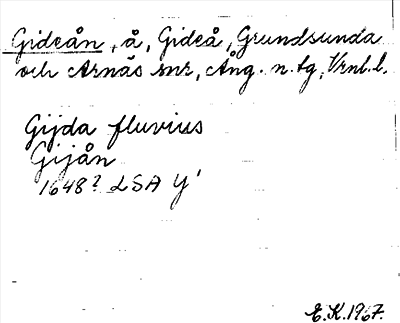 Gideån, å, Gideå, Grundsunda
och Arnäs snr, Ång. n. tg, Vrnl. l.
Gijda fluvius
Gijån
1648? LSA Y'
E.K.1967.